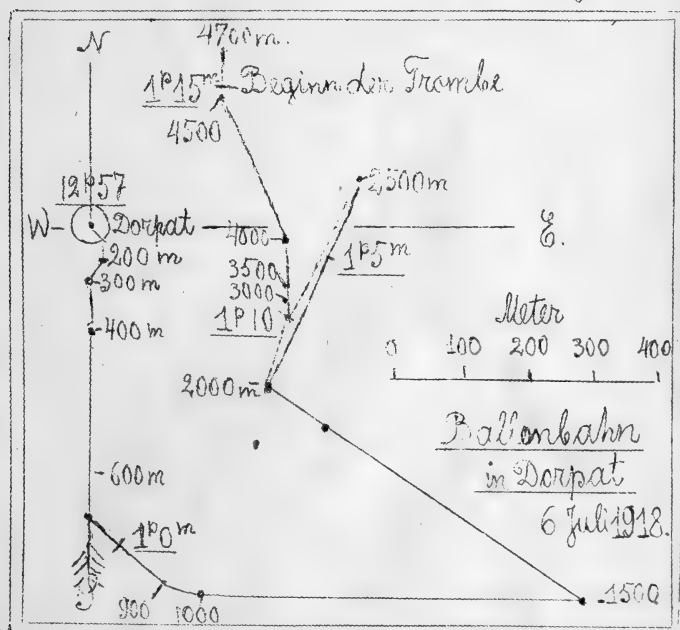 N
4700 m.
1p15m Beginn der Trombe
4500
12p57
2500 m
W Dorpat
4000
E.
200 m
1p5m
300 m
3500
3000
1p10
400 m
Meter
0 100 200 300 400
2000 m
Ballonbahn
in Dorpat
6 Juli 1918.
600 m
1p0m
900
1000
1500
S